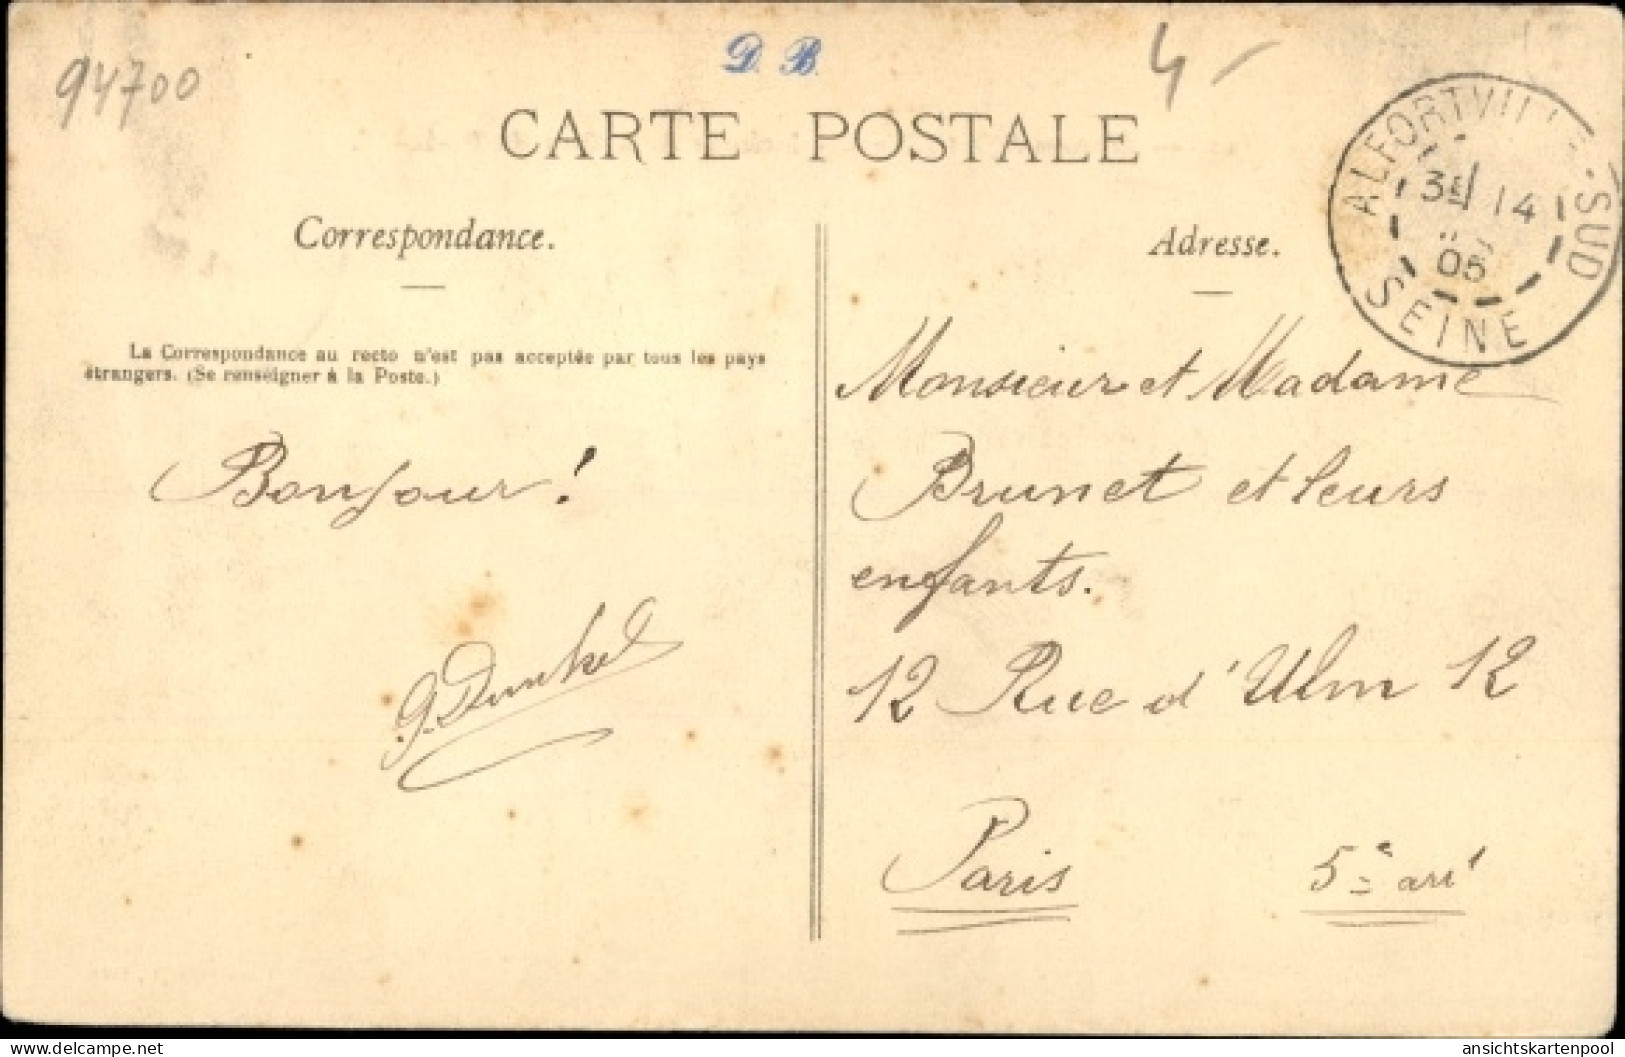 94700
D. B.
4 -
CARTE POSTALE
ALFORTVILLE-SUD
3E 14
05
SEINE
Correspondance.
Adresse.
La Correspondance au recto n'est pas acceptée par tous les pays
étrangers. (Se renseigner à la Poste.)
Bonjour !
G. Dunkel
Monsieur et Madame
Brunet et leurs
enfants.
12 Rue d'Ulm 12
Paris 5e arrt
www.delcampe.net
ansichtskartenpool